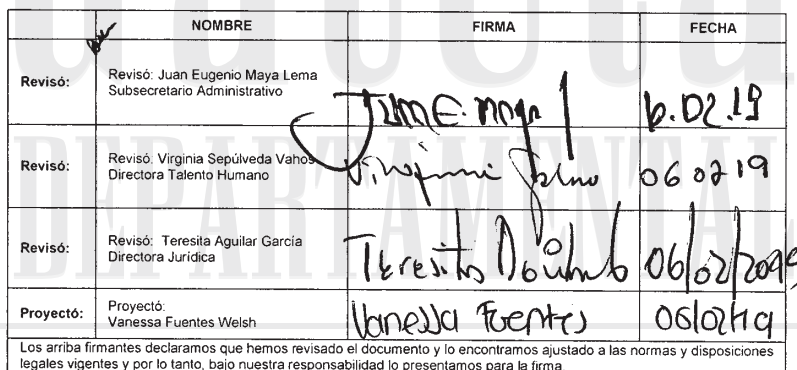 NOMBRE FIRMA FECHA
Revisó: Revisó: Juan Eugenio Maya Lema
Subsecretario Administrativo
Juan E. Maya 6.02.19
Revisó: Revisó: Virginia Sepúlveda Vahos
Directora Talento Humano
Virginia 06 02 19
Revisó: Revisó: Teresita Aguilar García
Directora Jurídica
Teresita Aguilar 06/02/2019
Proyectó: Proyectó:
Vanessa Fuentes Welsh
Vanessa Fuentes 06/02/19
Los arriba firmantes declaramos que hemos revisado el documento y lo encontramos ajustado a las normas y disposiciones
legales vigentes y por lo tanto, bajo nuestra responsabilidad lo presentamos para la firma.
DEPARTAMENTAL